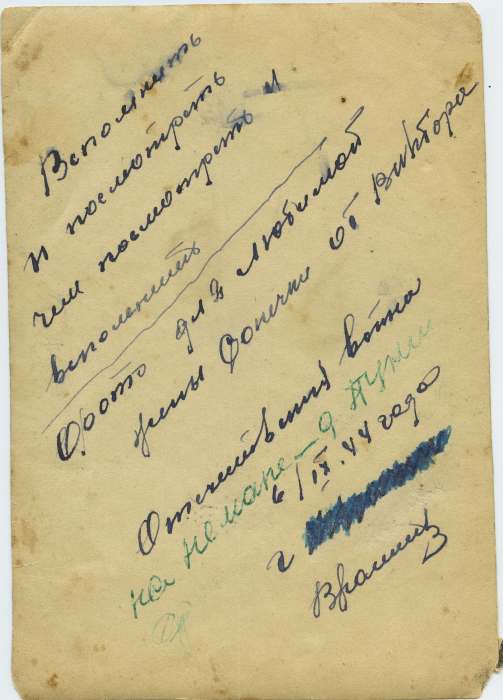 Вспомнить
и посмотреть
чем посмотреть и
вспомнить
Фото для любимой
жены Сонечки от Виктора
Отечественная война
на Немане-
6/IX.44 года
г